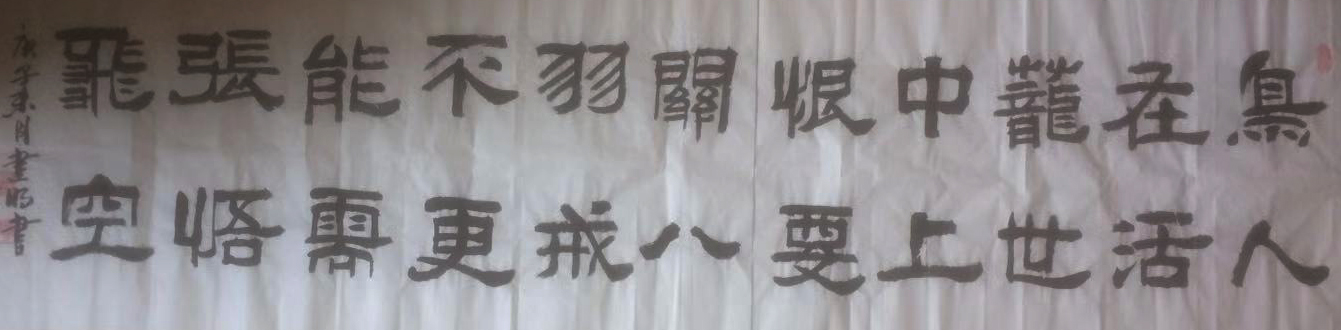 鳥在蘢中恨關羽不能張飛
人活世上要八戒更需悟空
月書